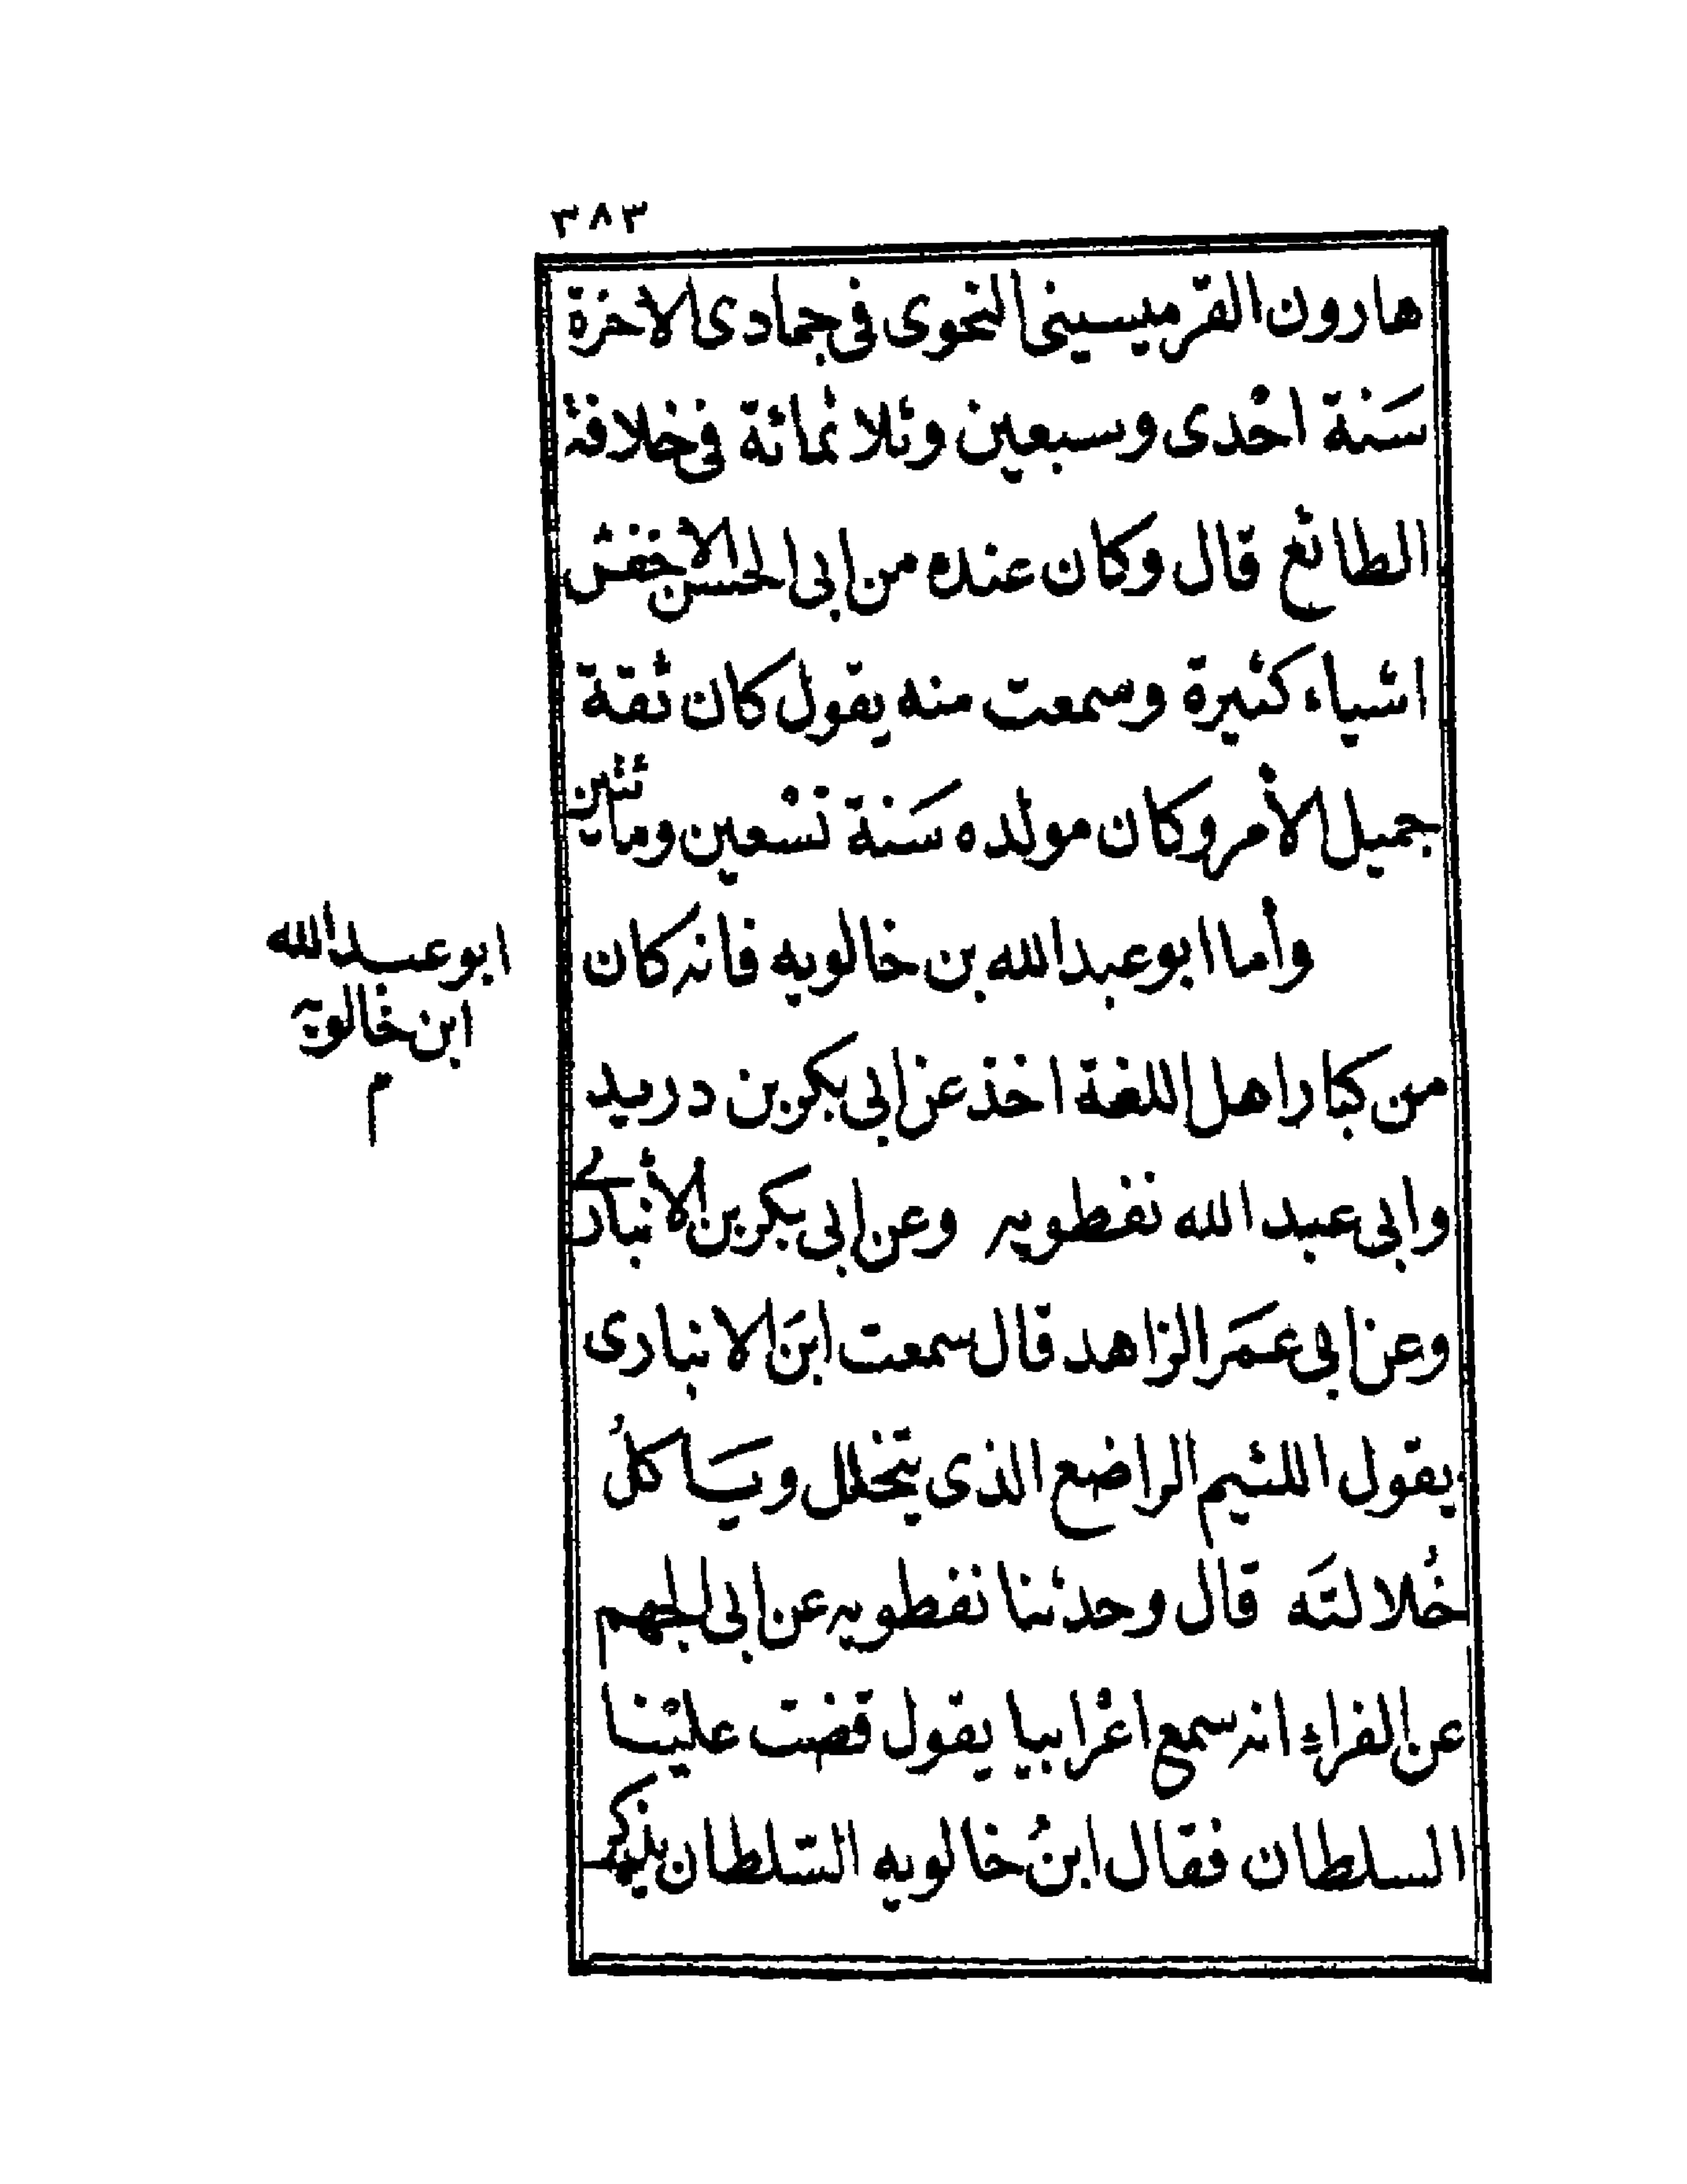 ٣٨٣
هارون القرميسينى النحوى فى جمادى الاخرة
سَنة احْدى وسبعين وثلاثمائة فى خلافة
الطائع قال وكان عنده من ابى الحسن الاخفش
اشياء كثيرة وسمعت منه يقول كان ثقة
جميل الأمر وكان مولده سَنة تسْعين ومائتين
وأما ابو عبد الله بن خالويه فانه كان
من كبار اهل اللغة اخذ عن ابى بكر بن دريد
وابى عبد الله نفطويه وعن ابى بكر بن الأنبارى
وعن ابى عمَر الزاهد قال سمعت ابنَ الانبارى
يقول اللئيم الراضع الذى يتخلل ويَاكلُ
خُلالتَه قال وحدثنا نفطويه عن ابى الجهم
عن الفراء انه سمع اعْرابيا يقول قضت عليْنا
السلطان فقال ابنُ خالويه السّلطان يذكر
ابو عبد الله
ابن خالويه
م